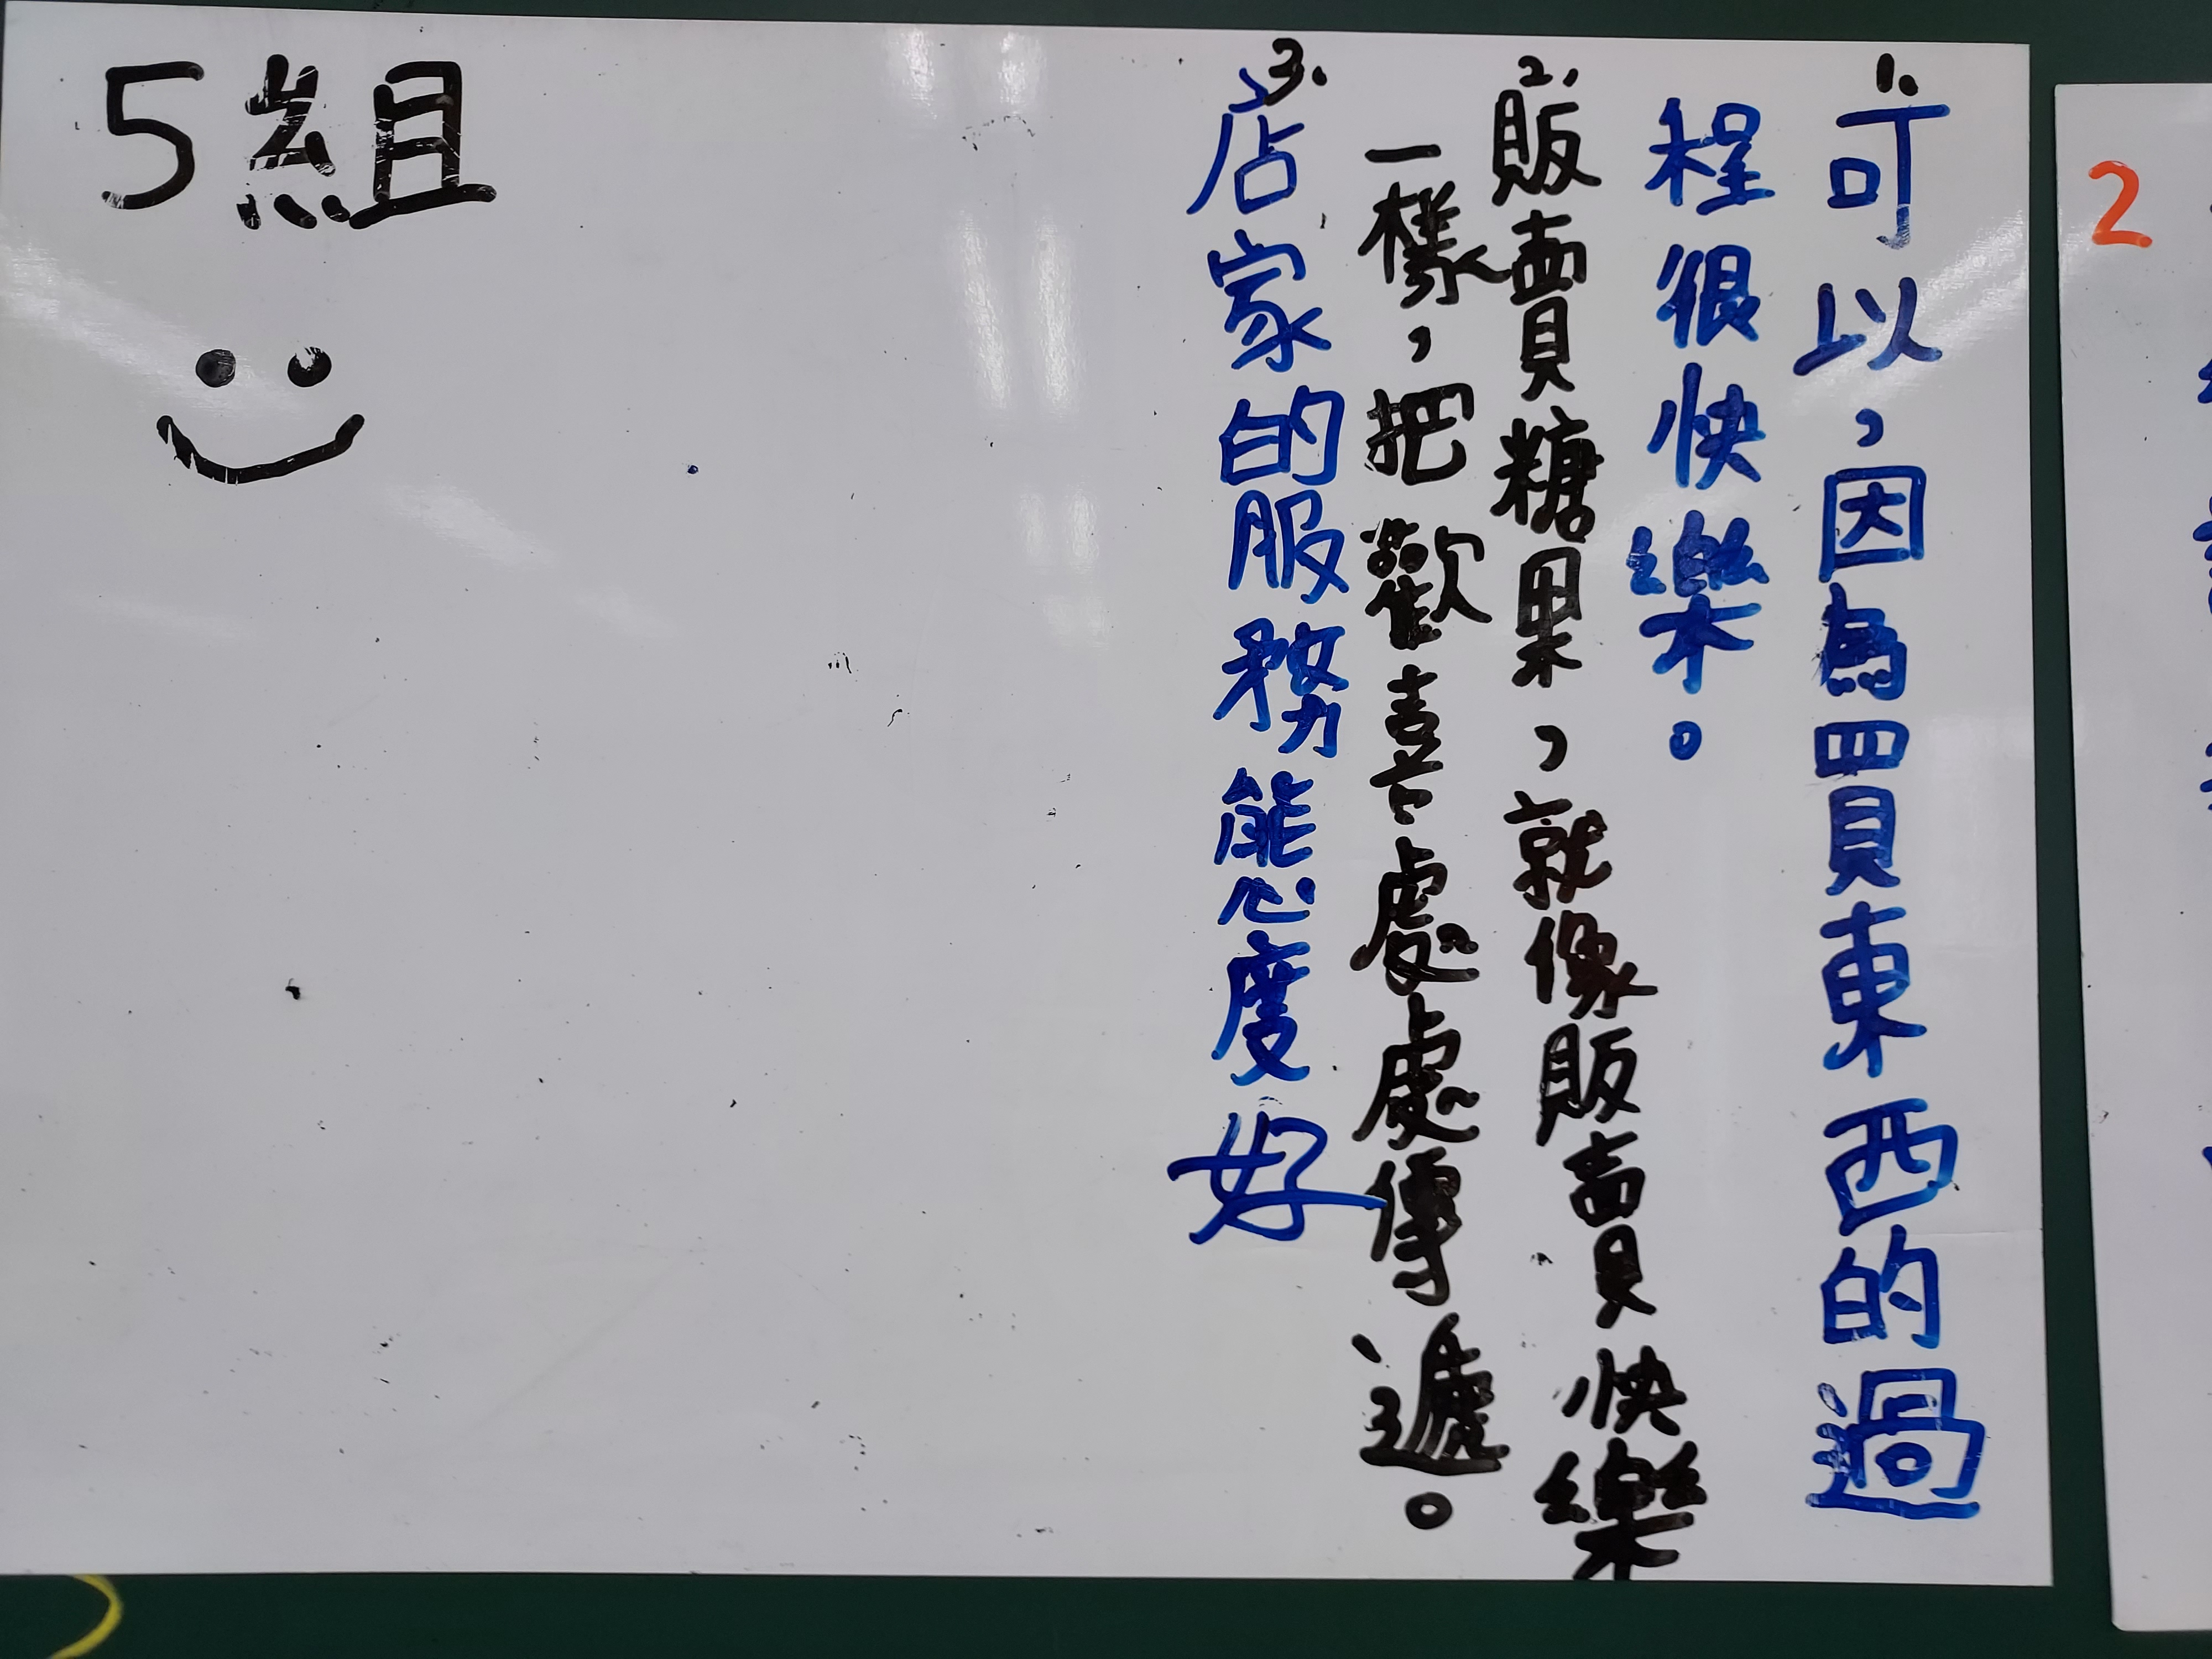 1. 可以，因為買東西的過
程很快樂。
2. 販賣糖果，就像販賣快樂
一樣，把歡喜處處傳遞。
3. 店家的服務態度好
5組
2